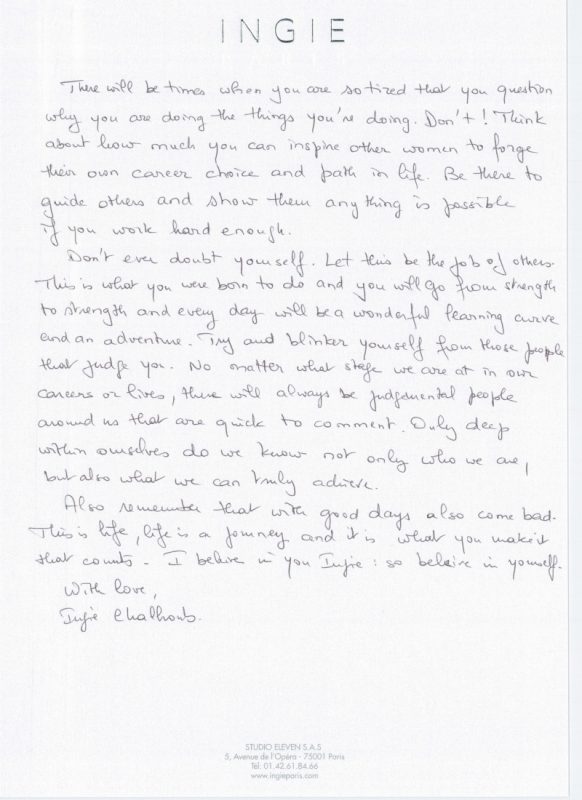 INGIE
There will be times when you are so tired that you question
why you are doing the things you're doing. Don't! Think
about how much you can inspire other women to forge
their own career choice and path in life. Be there to
guide others and show them anything is possible
if you work hard enough.
Don't ever doubt yourself. Let this be the job of others.
This is what you were born to do and you will go from strength
to strength and every day will be a wonderful learning curve
and an adventure. Try and blinker yourself from those people
that judge you. No matter what stage we are at in our
careers or lives, there will always be judgemental people
around us that are quick to comment. Only deep
within ourselves do we know not only who we are,
but also what we can truly achieve.
Also remember that with good days also come bad.
This is life, life is a journey and it is what you make it
that counts - I believe in you Ingie : so believe in yourself.
With love,
Ingie Chalhoub.
STUDIO ELEVEN S.A.S
5, Avenue de l'Opéra - 75001 Paris
Tél: 01.42.61.84.66
www.ingieparis.com